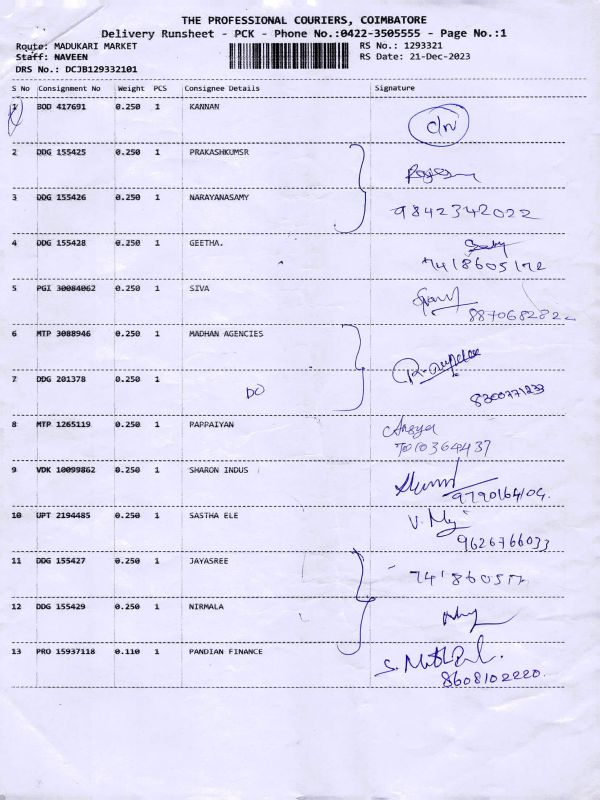 THE PROFESSIONAL COURIERS, COIMBATORE
Delivery Runsheet - PCK - Phone No.:0422-3505555 - Page No.:1
Route: MADUKARI MARKET
RS No.: 1293321
Staff: NAVEEN
RS Date: 21-Dec-2023
DRS No.: DCJB129332101
S No Consignment No Weight PCS Consignee Details Signature
1 BOD 417691 0.250 1 KANNAN
2 DDG 155425 0.250 1 PRAKASHKUMSR
3 DDG 155426 0.250 1 NARAYANASAMY
9842342022
4 DDG 155428 0.250 1 GEETHA.
7418605172
5 PGI 30084062 0.250 1 SIVA
8870682822
6 MTP 3088946 0.250 1 MADHAN AGENCIES
7 DDG 201378 0.250 1
DO
8 MTP 1265119 0.250 1 PAPPAIYAN
9 VDK 10099862 0.250 1 SHARON INDUS
10 UPT 2194485 0.250 1 SASTHA ELE
9626766033
11 DDG 155427 0.250 1 JAYASREE
12 DDG 155429 0.250 1 NIRMALA
13 PRO 15937118 0.110 1 PANDIAN FINANCE
8608102220.